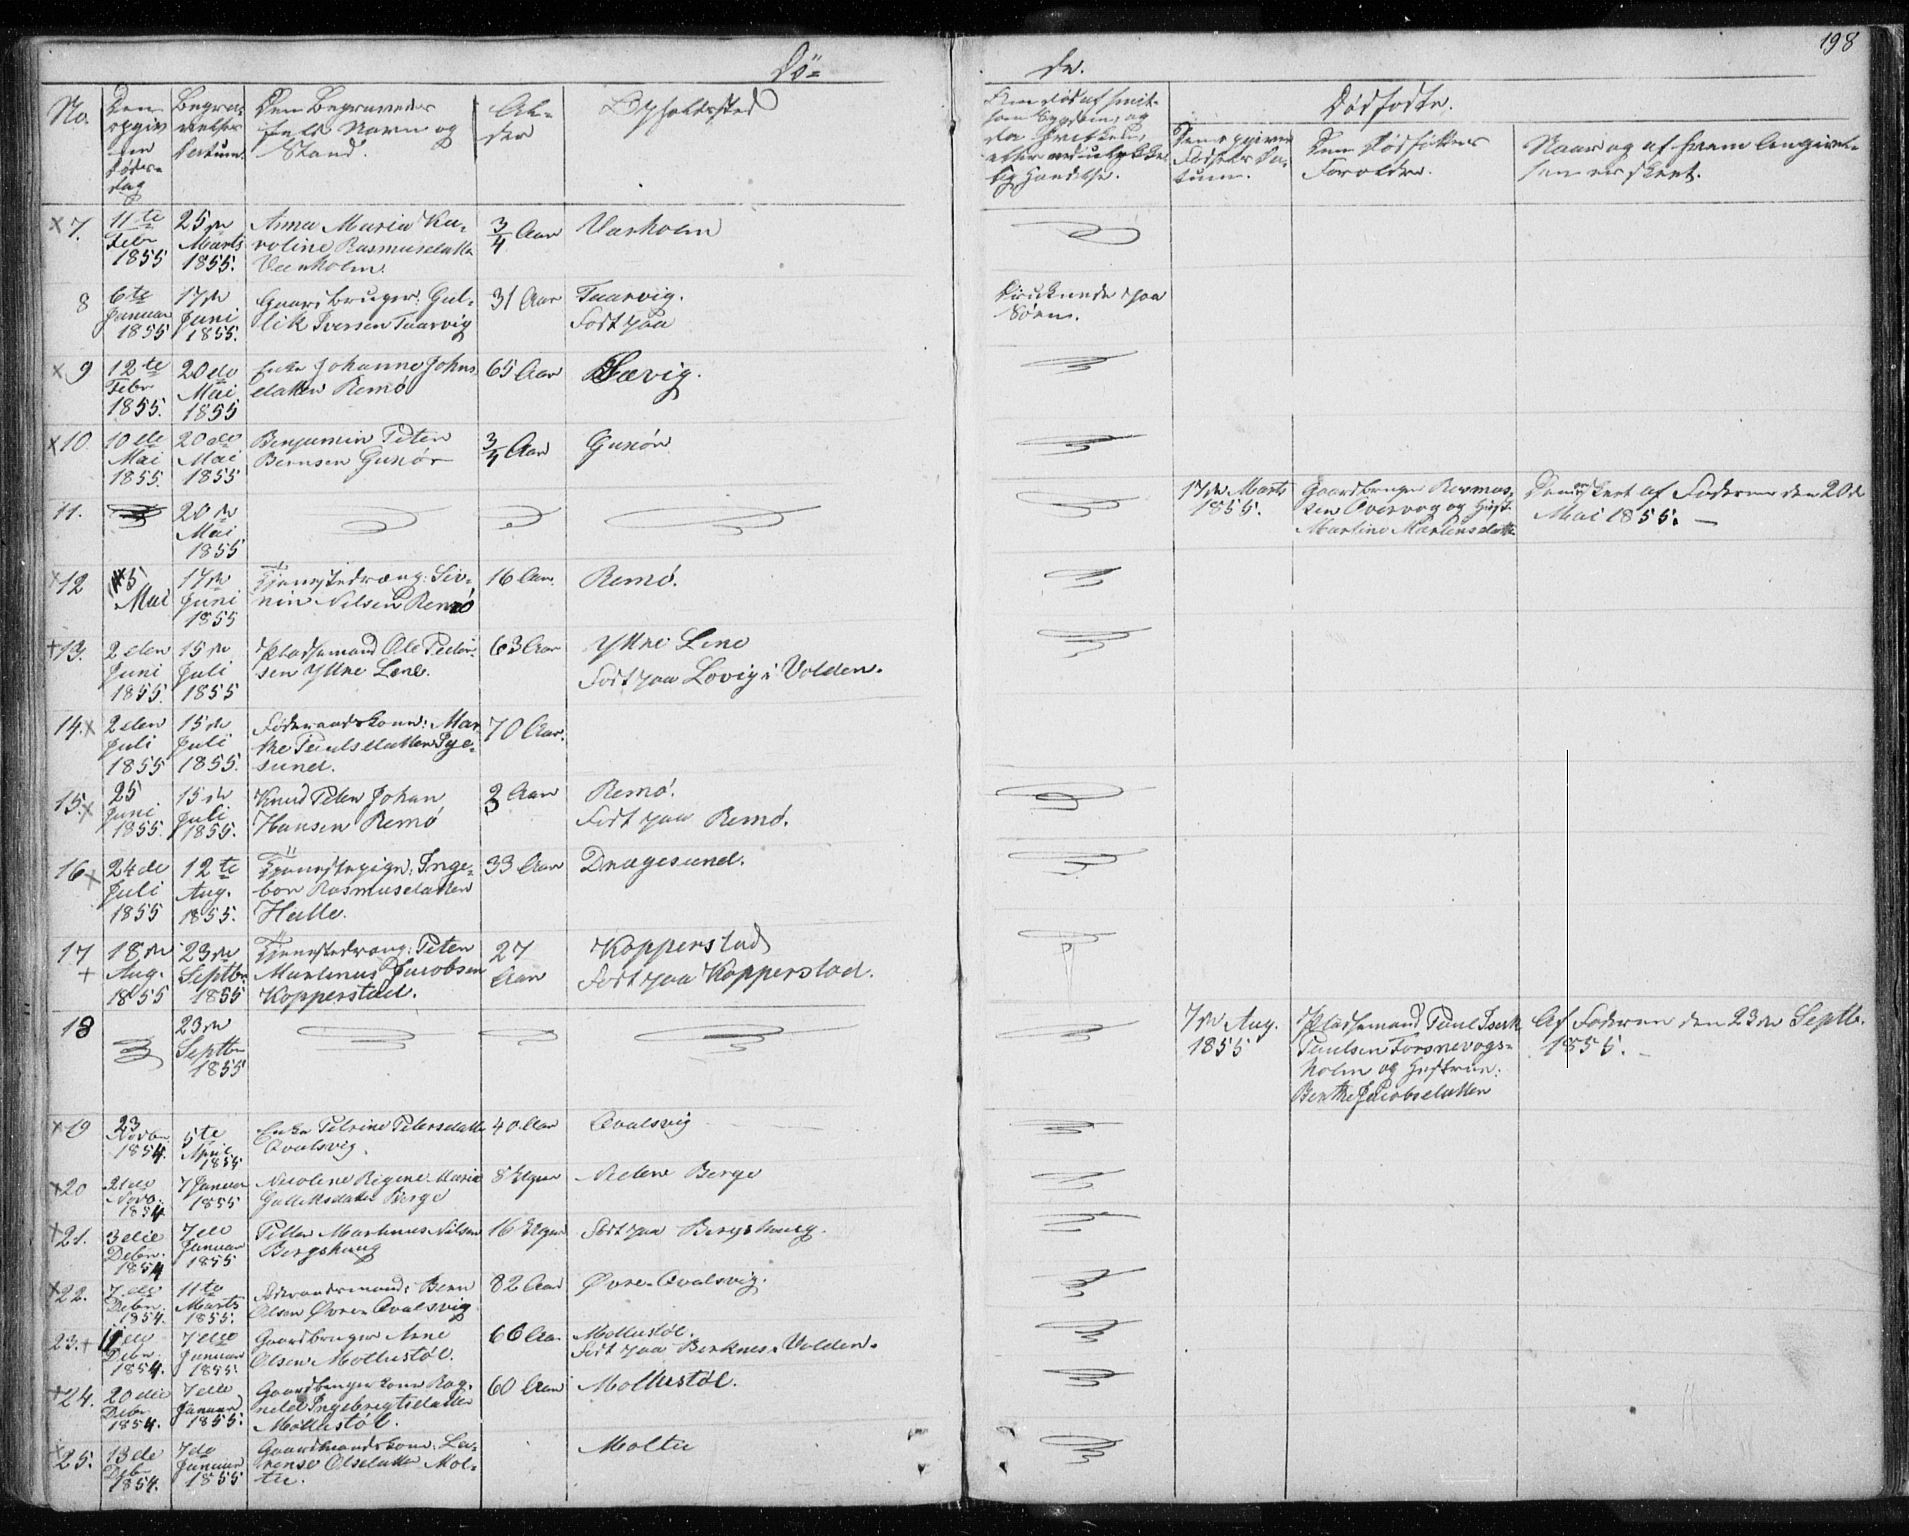 198
Dö=
de.
No.
Den
opgiv
ne
Døds=
dag
Begra=
velses
Datum.
Den Begravedes
fulde Navn og
Stand.
Al=
der
Opholdssted
Dødfødte.
Den opgivne
Fødsels Da=
tum.
Den Dødfødtes
Forældre.
Naar og af hvem Angivel=
sen er skeet.
7.
11te
Febr
1855
25de
Marts
1855.
Anna Maria Ka=
roline Rasmusdatter
3/4 Aar
Varholm
8
6te
Januar
1855
17de
Juni
1855.
Gaardbruger: Gul=
lik Iversen Taarvig
31 Aar
Taarvig.
Født paa
Druknede paa
Søen.
9
12te
Febr
1855.
20de
Mai
1855
Enke Johanne Johns
datter Remø
65 Aar
Sævig.
10.
10de
Mai
1855.
20de
Mai
1855
Benjamin Peter
Berntsen Gurør
3/4 Aar
11.
20de
Mai
1855
17de Marts
1855.
Gaardbruger Rasmus
og Hust.
Martine Martinsdatter
skeet af Faderen den 20de
Mai 1855. —
12
5
Mai
17de
Juni
1855
Tjenestedreng: Siv=
rin Nilsen Remø
16 Aar.
Remø.
13.
2den
Juni
1855.
15de
Juli
1855
Pladsemand Ole Peder=
sen Yttre Lene.
63 Aar
Yttre Lene
Født paa Løvig i Volden.
14.
2den
Juli
1855
15de
Juli
1855.
Føderaadskone: Mar=
the Paulsdatter
sund.
70 Aar.
15.
25
Juni
1855.
15de
Juli
1855.
Knud Peter Johan
Hansen Remø
3 Aar
Remø.
Født paa Remø.
16
24de
Juli
1855
12te
Aug.
1855.
Tjenestepige: Inge=
bor Rasmusdatter
Halle.
33 Aar
Dragesund.
17
18de
Aug.
1855
23de
Septbr
1855
Tjenestedreng: Peter
Martinus Jacobsen
Kopperstad.
27
Aar
Kopperstad
Født paa Kopperstad.
18
23de
Septbr
1855
7de Aug.
1855
Pladsemand Paul
Paulsen Torsnevogs=
holm og Hustrue:
Berthe Jacobsdatter
Af Faderen den 23de Septb.
1855. —
19
23
Novbr
1854.
5te
April
1855
Enke Petrine Petersdatter
Qvalsvig.
40 Aar
Qvalsvig
20
21de
Novb.
1854
7 Januar
1855
Nicoline Regine Marie
Gulliksdatter Berge
8 Uger
Nedre Berge
21.
3die
Debr.
1854
7de
Januar
1855
Petter Martinus Nilsen
Bergshaug
16 Uger
Født paa Bergshaug.
22.
7de
Debr.
1854.
11te
Marts
1855.
Føderaadsmand: Bern
Olsen Øvre-Qvalsvig
82 Aar
Øvre-Qvalsvig.
23.
Debr.
1854.
7de
Januar
1855.
Gaardbruger Arne
Olsen Mollestøl.
66 Aar.
Mollestøl.
Født paa Berknes. Volden.
24.
20de
Debr.
1854.
7de
Januar
1855.
Gaardbrugerkone Rag=
nild Ingebrigtsdatter
Mollestøl.
60 Aar
Mollestøl.
25.
13de
Debr
1854.
7de
Januar
1855
Gaardmandskone: La=
Olsdatter Mol=
tu.
Moltu